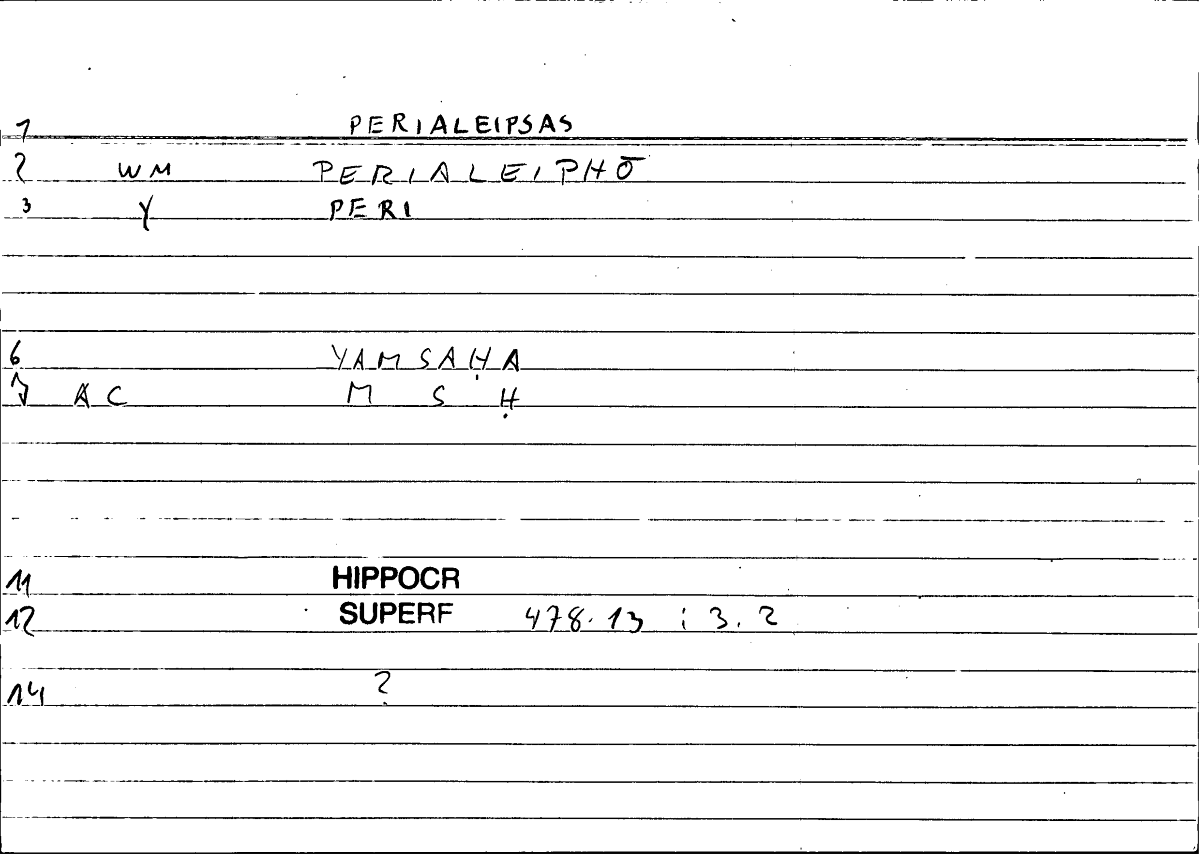 1 PERIALEIPSAS
2 WM PERIALEIPHŌ
3 Y PERI
6 YAMSAḤA
7 AC M S Ḥ
11 HIPPOCR
12 SUPERF 478.13 ; 3.2
14 ?